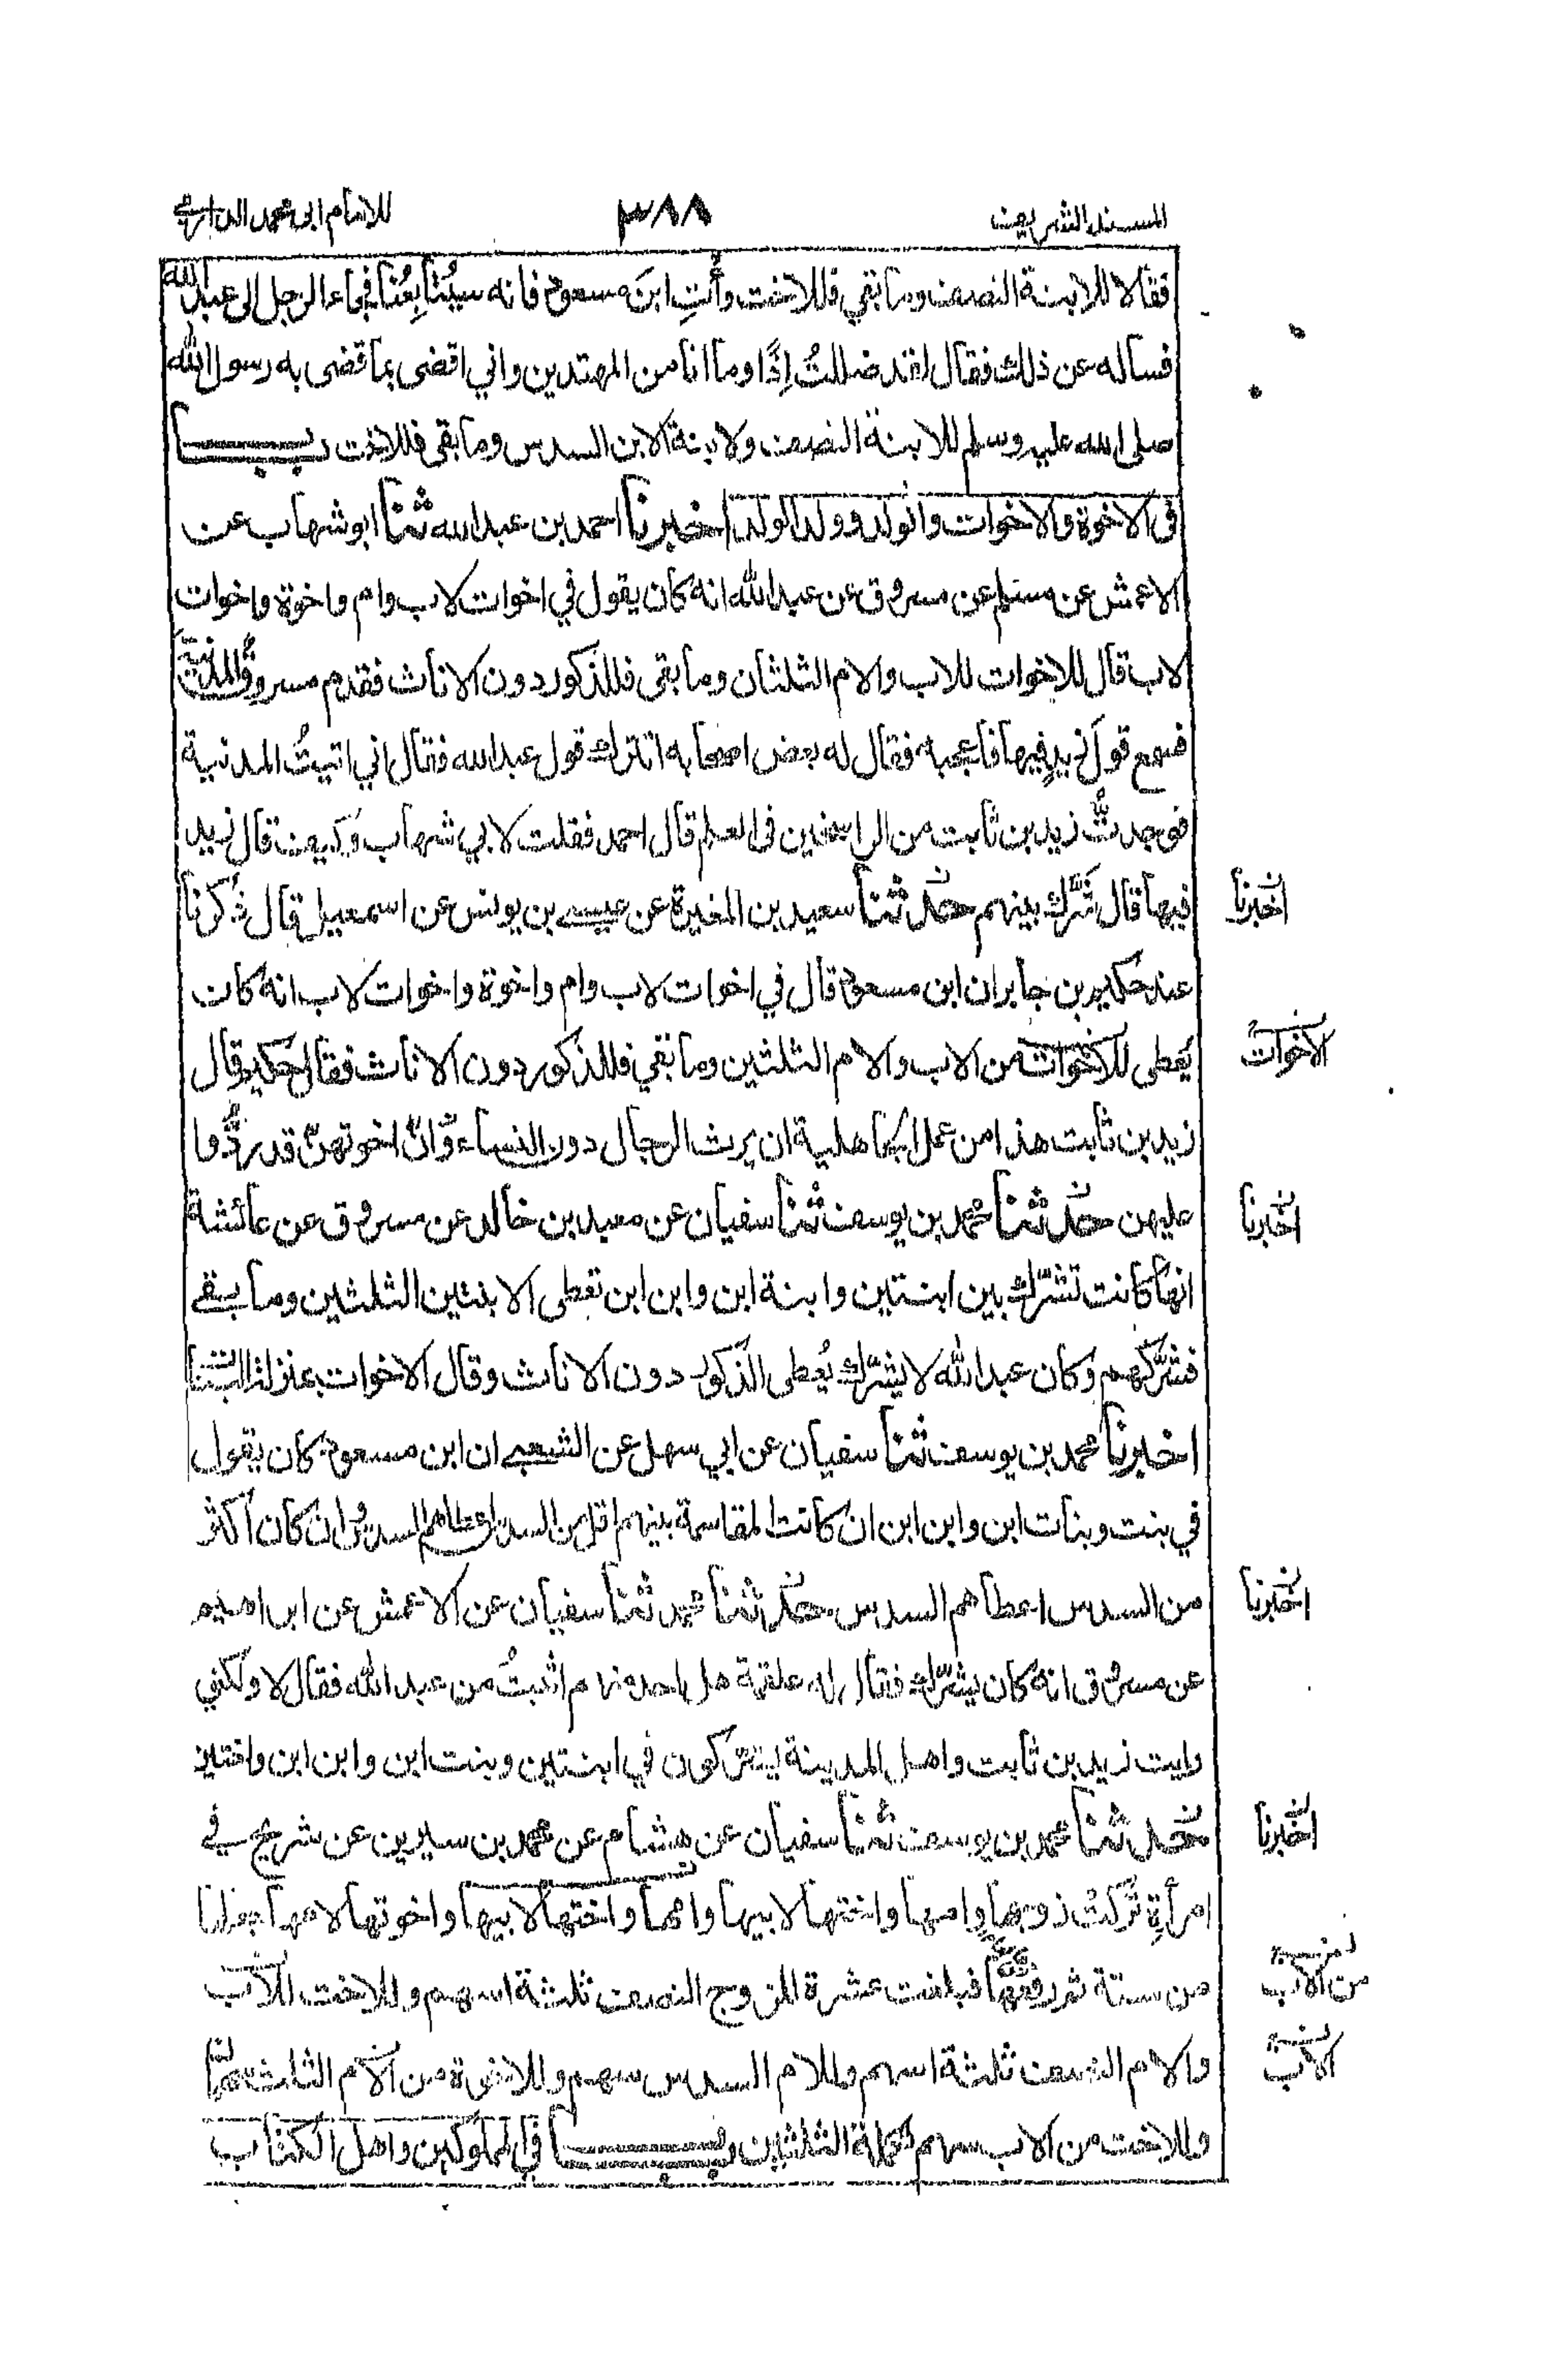 المسند الشريف ٣٨٨ للامام ابى محمد الدارمي
فقالا للابنة النصف وما بقي فللاخت وأت ابن مسعود فانه سيتابعنا فجاء الرجل الى عبد الله
فساله عن ذلك فقال لقد ضللتُ اِذًا وما انا من المهتدين واني اقضى بما قضى به رسول الله
صلى الله عليه وسلم للابنة النصف ولابنة الابن السدس وما بقى فللاخت باب
فى الاخوة والاخوات والولد وولد الولد اخبرنا احمد بن عبد الله ثنا ابو شهاب عن
الاعمش عن مسلم عن مسروق عن عبد الله انه كان يقول في اخوات لاب وام واخوة واخوات
لاب قال للاخوات للاب والام الثلثان وما بقى فللذكور دون الاناث فقدم مسروق المدينة
فسمع قول زيد فيها فاعجبه فقال له بعض اصحابه اتترك قول عبد الله فقال اني اتيتُ المدينة
فوجدتُ زيد بن ثابت من الراسخين فى العلم قال احمد فقلت لابي شهاب وكيف قال زيد
فيها قال شرّك بينهم حدثنا سعيد بن المغيرة عن عيسى بن يونس عن اسمعيل قال ذكرنا
اخبرنا
عند حكيم بن جابر ان ابن مسعود قال في اخوات لاب وام واخوة واخوات لاب انه كان
يعطى للاخوات من الاب والام الثلثين وما بقي فللذكور دون الاناث فقال حكيم قال
الاخوات
زيد بن ثابت هذا من عمل الجاهلية ان يرث الرجال دون النساء وانّ اخوتهنّ قد رُدّوا
عليهن حدثنا محمد بن يوسف ثنا سفيان عن معبد بن خالد عن مسروق عن عائشة
اخبرنا
انها كانت تشرّك بين ابنتين وابنة ابن وابن ابن تعطى الابنتين الثلثين وما بقى
فشرّكهم وكان عبد الله لا يشرّك يُعطى الذكور دون الاناث وقال الاخوات بمنزلة البنات
اخبرنا محمد بن يوسف ثنا سفيان عن ابي سهل عن الشعبي ان ابن مسعود كان يقول
في بنت وبنات ابن وابن ابن ان كانت المقاسمة بينهم اقل من السدس اعطاهم السدس وان كان اكثر
من السدس اعطاهم السدس حدثنا محمد ثنا سفيان عن الاعمش عن ابراهيم
اخبرنا
عن مسروق انه كان يشرّك فقال له علقمة هل احد منهم اثبتُ من عبد الله فقال لا ولكني
رايت زيد بن ثابت واهل المدينة يشركون في ابنتين وبنت ابن وابن ابن واختين
حدثنا محمد بن يوسف ثنا سفيان عن هشام عن محمد بن سيرين عن شريح في
اخبرنا
امرأةٍ تركتْ زوجها وامها واختها لابيها وامها واختها لابيها واخوتها لامها جعلها
من ستة ثم رفعها فبلغت عشرة للزوج النصف ثلثة اسهم وللاخت للاب
من الاب
والام النصف ثلثة اسهم وللام السدس سهم وللاخوة من الام الثلث سهمان
الاب
وللاخت من الاب سهم تكملة الثلثين باب في المملوكين واهل الكتاب